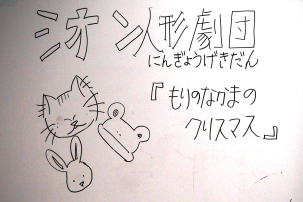 シオン人形劇団
にんぎょうげきだん
『もりのなかまの
クリスマス』